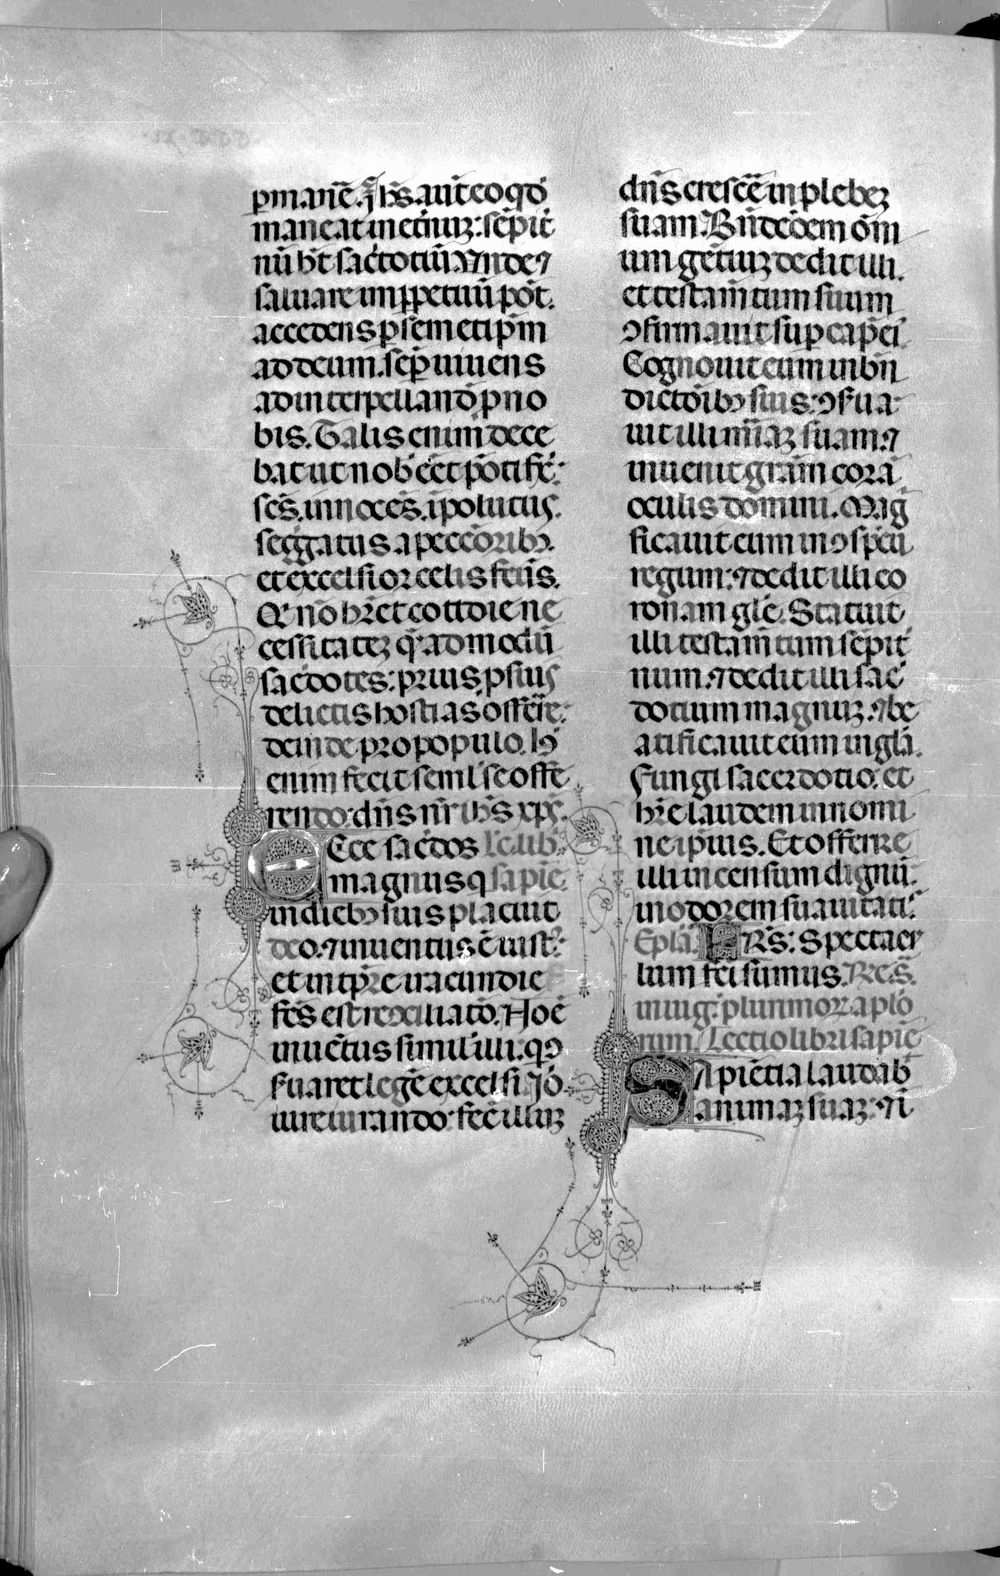 ꝑmanē͛. ihs̄ aut̄ eo qď
maneat in et̾nuꝫ: sēpit̾
nū hꝫ̄t sac̾dotiū. Vnde ⁊
saluare in ꝑpetuū pōt.
accedens ꝑ semetip̄m
ad deum. sēꝑ uiuens
ad interpellandō ꝓ no
bis. Talis enim dece
bat ut nob̾ ēēt pōtifē:
sc̄s. innocēs. īpolutus.
seg̾gatus a peccōribꝰ.
et excelsior celis fcūs.
Qi nō hꝫ̄t cottidie ne
cessitateꝫ q̄̾admodū
sac̾dotes: prius ꝓ suis
delictis hostias offerre:
deinde pro populo. h̾
enim fecit seml̾ se offe
rendo: dn̄s nr̄ ihs̄ xp̄s.
Ecce sac̾dos Lc̄. lib̾.
magnus q̄ sapiē.
in diebꝫ suis placuit
deo. ⁊ inuentus ē iust̾:
et in tp̄re iracundie
fc̄s est reconciliatō. Nō ē
inuētus simil̾ illi: qī ꝯ
seruaret legē excelsi. Iō
iureiurando: fec̾ illuꝫ
dn̄s crescē̾ in plebeꝫ
suam. Bn̄dcōem ōm
ium gētiuꝫ dedit illi.
et testam̄tum suum
ꝯfirmauit sup̾ cap̄ ei̾
Cognouit eum in bn̄
dictōibꝫ suis: ꝯserua
uit illi mīaꝫ suam: ⁊
inuenit gr̄am corā
oculis domini. Magī
ficauit eum in ꝯspcū
regum: ⁊ dedit illi co
ronam gl̄e. Statuit
illi testam̄tum sēpit̾
num. ⁊ dedit illi sac̾
dotium magnuꝫ. ⁊ be
atificauit eum in gl̄a.
Fungi sacerdotio. et
hr̄e laudem in nomi
ne ipius. Et offerre
illi incensum dignū.
in odorem suauitati̾.
Epl̄a FRS: Spectac̾
lum fcī sumus. Re. ⸱s.
in uig̾. plurimoꝝ aplo
rum. Lectio libri sapiē
Sapiētia laudab̾
animaꝫ suaꝫ: ⁊ ī